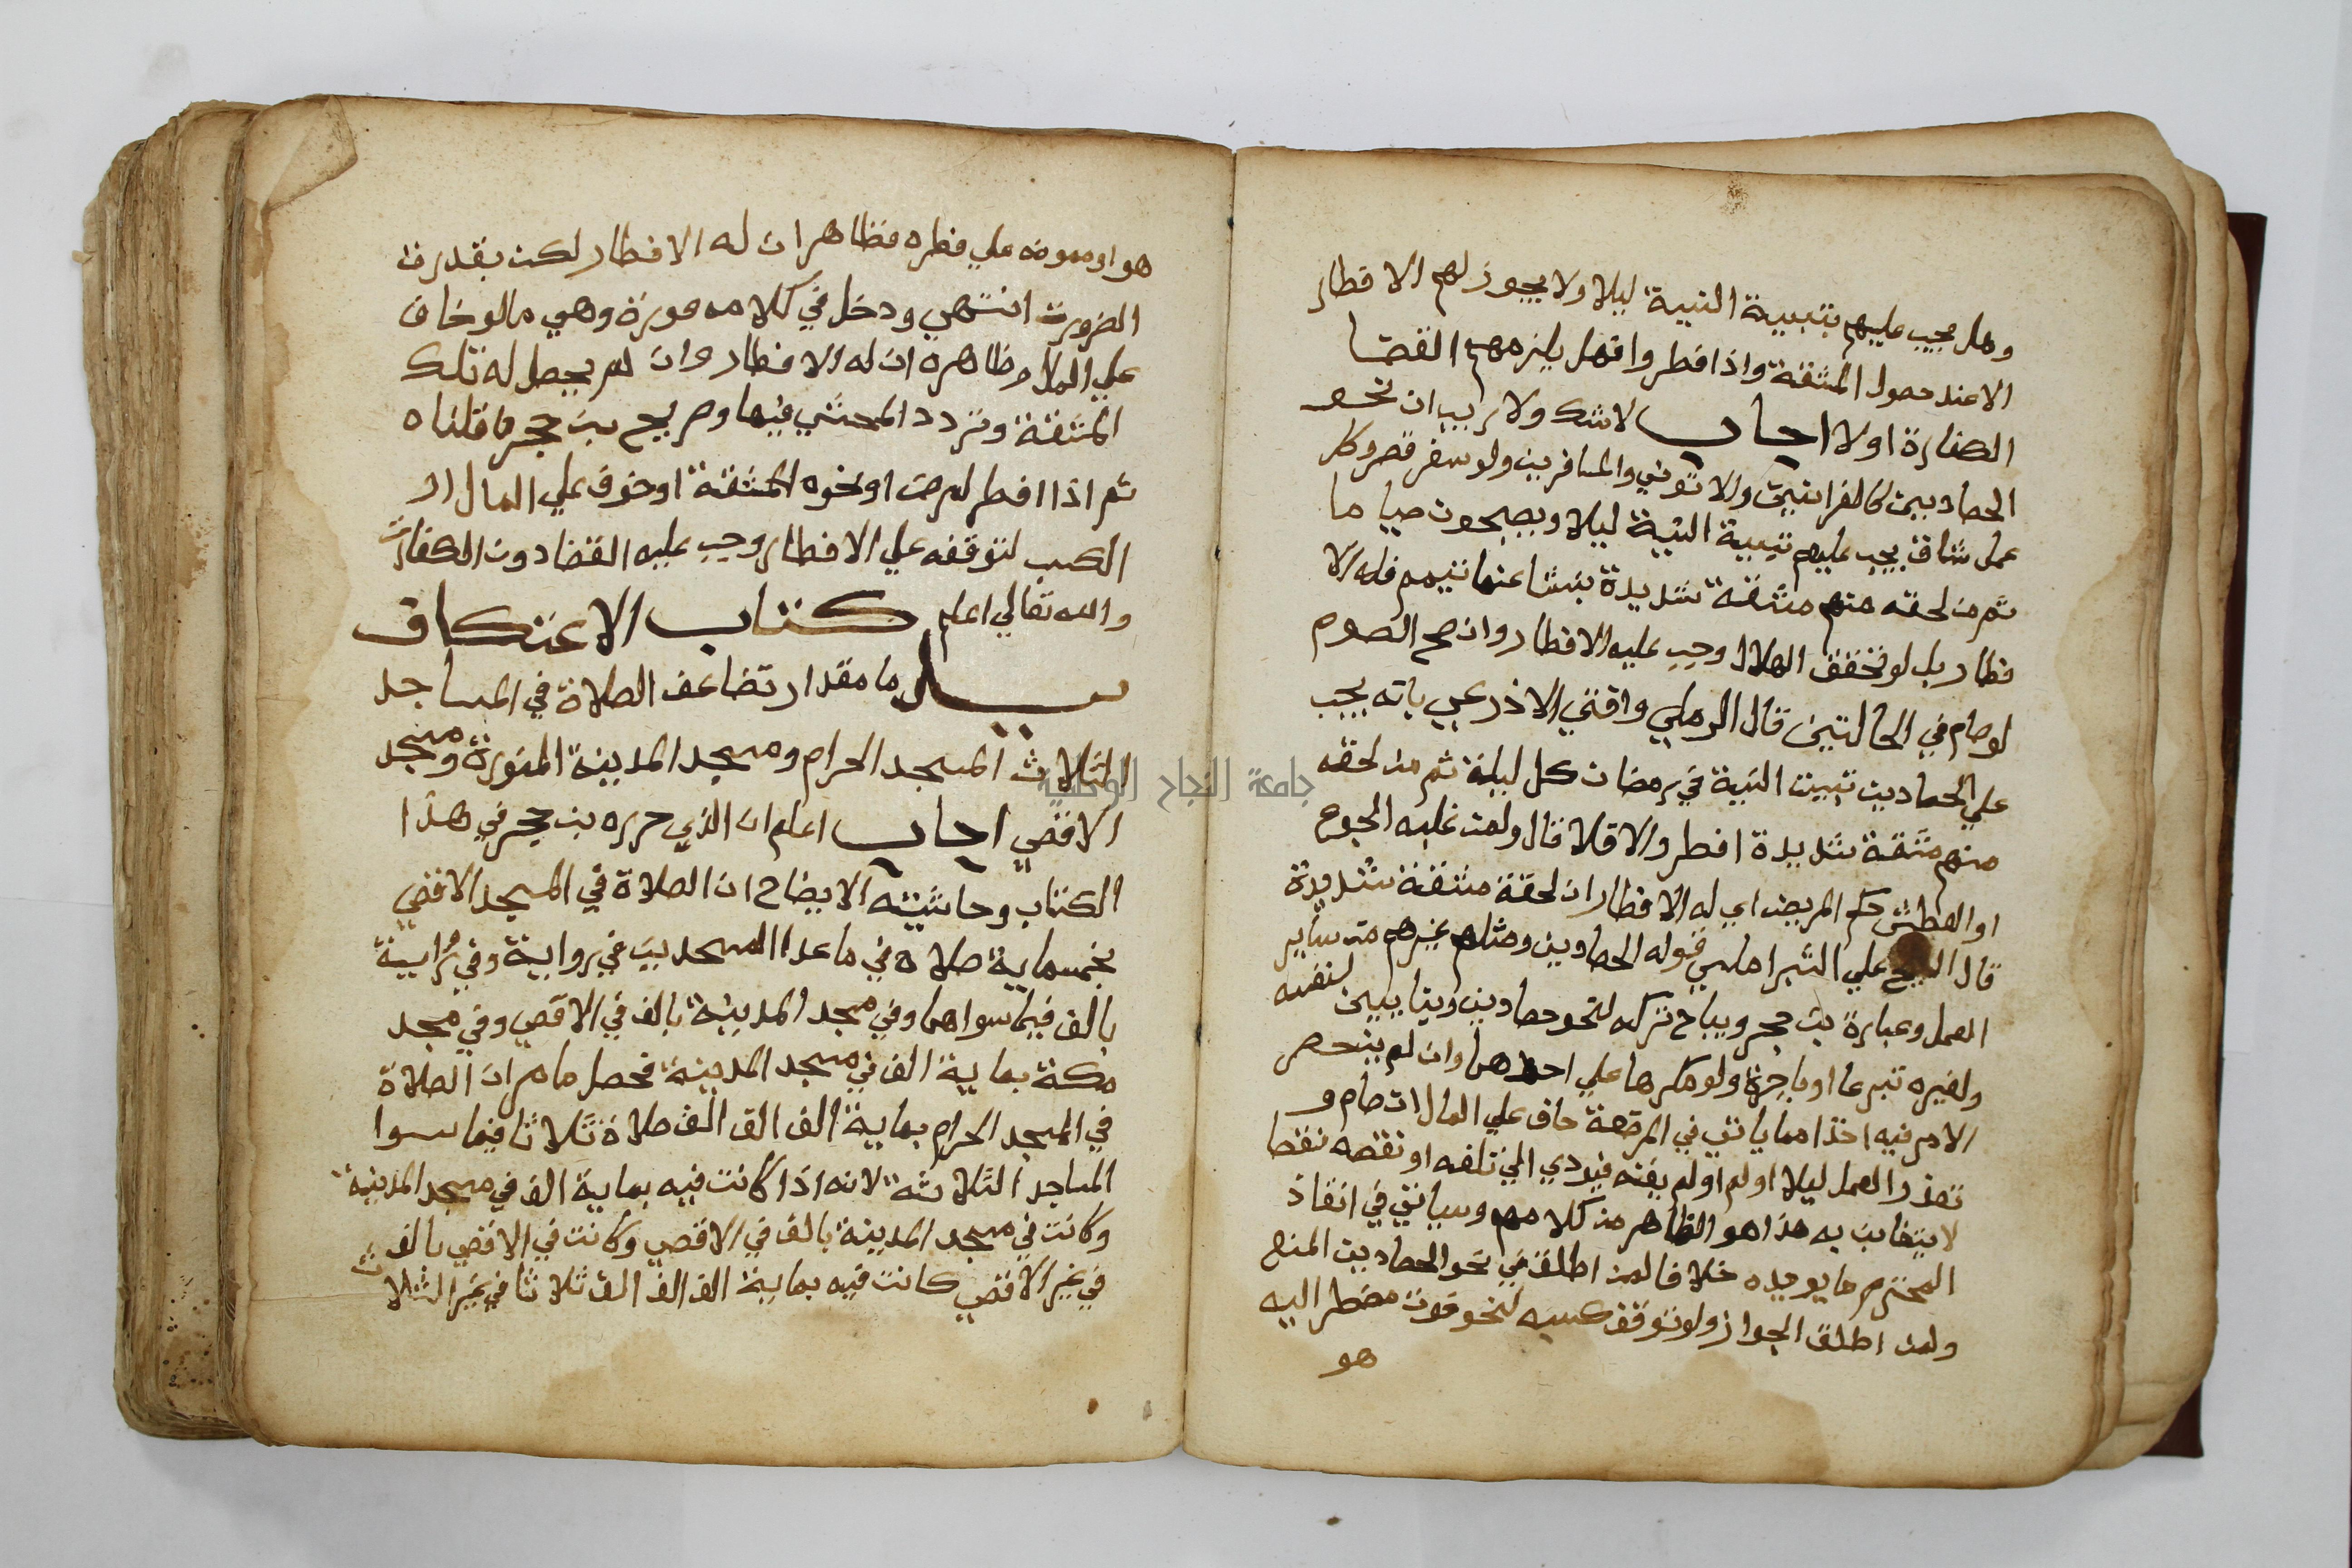 وهل يجب عليهم بتبييت النية ليلا ولا يجوز لهم الافطار
الا عند حصول المشقة واذا فطروا فهل يلزمهم القضا
الكفارة اولا اجاب لاشك ولا ريب ان نحو
الحصادين كالفراتين والاتوني والمسافرين ولو سفر قصر وكل
عمل شاق يجب عليهم تبييت النية ليلا ويصبحون صياما
ثم من لحقته منهم مشقة شديدة ينشا عنها تيمم فله الا
فطار بل لو تحقق الهلاك وجب عليه الافطار وان صح الصوم
لو صام في الحالتين قال الرملي وافتي الاذرعي بانه يجب
علي الحصادين تبييت النية في رمضان كل ليلة ثم من لحقه
منهم مشقة شديدة افطر والا فلا قال ولمن غلبه الجوع
او العطش حكم المريض اي له الافطار ان لحقة مشقة شديدة
قال الشيخ علي الشبراملسي قوله الحصادين ومثلهم غيرهم من ساير
العمل وعبارة بن حجر ويباح تركه لنحو حصادين وبنا يبين لنفسه
ولغيره تبرعا او باجرة ولو مكرها علي احدهما وان لم ينحصر
الامر فيه اخذا مما ياتي في المرضعة خاف علي المال ان صام و
تعذر العمل ليلا او لم يغنه فيودي الي تلفه او نقصه نقصا
لا يتغابن به هذا هو الظاهر من كلامهم وسياتي في انقاذ
المحترم ما يويده خلافا لمن اطلق في نحو الحصادين المنع
ولمن اطلق الجواز ولو توقف كسبه لنحو قوت مضطر اليه
هو
هو او ممونه علي فطره فظاهر ان له الافطار لكن بقدر
الضرورت انتهي ودخل في كلامه صورة وهي ما لو خاف
علي المال وظاهره ان له الافطار وان لم يحصل له تلك
المشقة وتردد المحشي فيها وصريح بن حجر ما قلناه
ثم اذا افطر لمرض او نحوه لمشقة او خوف علي المال او
الكسب لتوقفه علي الافطار وجب عليه القضا دون الكفارت
والله تعالي اعلم كتاب الاعتكاف
سيل ما مقدار تضاعف الصلاة في المساجد
الثلاث المسجد الحرام ومسجد المدينة المنورة ومسجد
الاقصي اجاب اعلم ان الذي حرره بن حجر في هذا
الكتاب وحاشيته الايضاح ان الصلاة في المسجد الاقصي
بخمسماية صلاه في ما عدا المسجدين في رواية وفي رايية
بالف فيما سواهما وفي مسجد المدينة بالف في الاقصي وفي مسجد
مكة بماية الف في مسجد المدينة فحصل مامر ان الصلاة
في المسجد الحرام بماية الف الف الف صلاة ثلاثا فيما سوا
المساجد الثلاثة لانه اذا كانت فيه بماية الف في مسجد المدينة
وكانت في مسجد المدينة بالف في الاقصي وكانت في الاقصي بالف
في غير الاقصي كانت فيه بماية الف الف الف ثلاثا في غير الثلاث
جامعة النجاح الوطنية